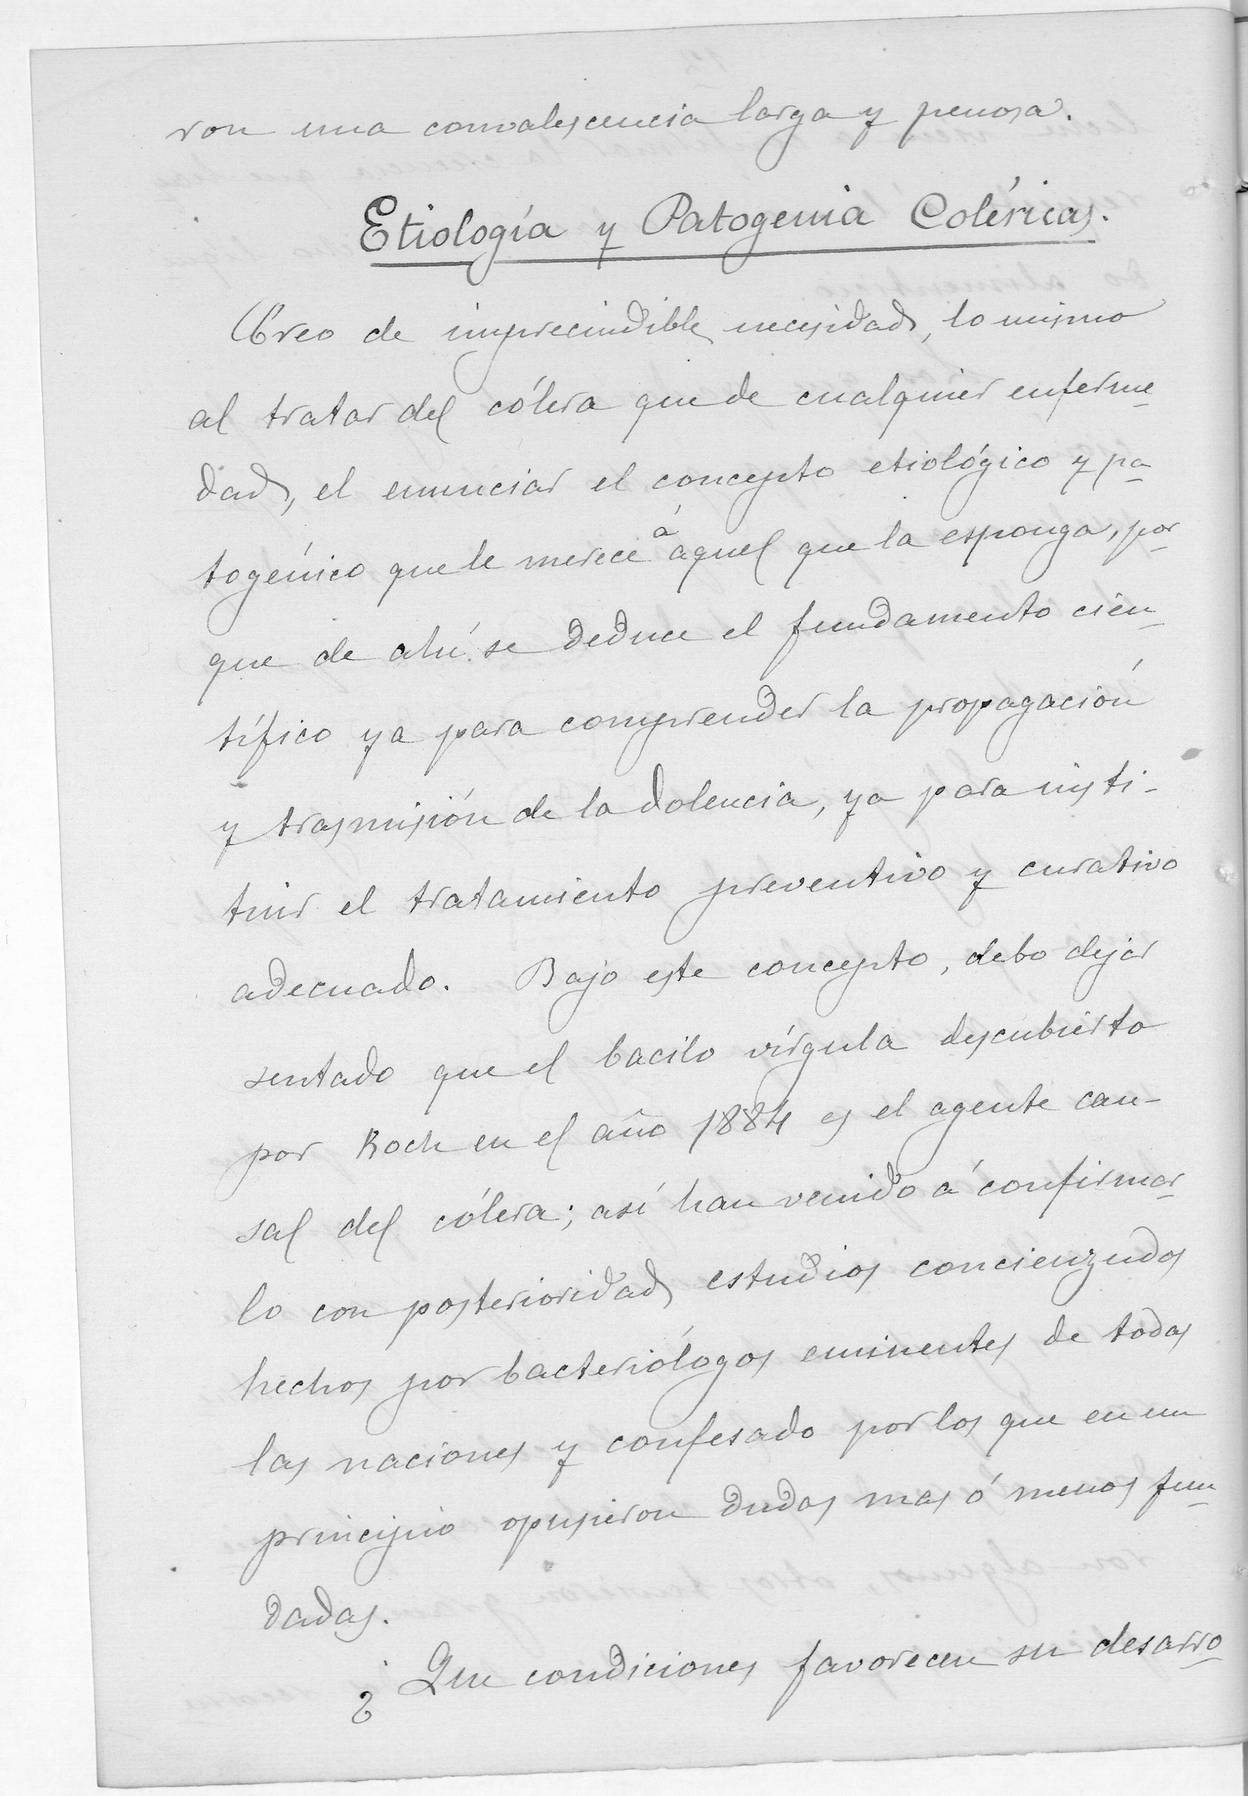 ron una convalescencia larga y penosa.
Etiología y Patogenia Coléricas.
Creo de imprecindible necesidad, lo mismo
al tratar del cólera que de cualquier enferme-
dad, el enunciar el concepto etiológico y pa-
togénico que le merece á aquel que la esponga, por-
que de ahí se deduce el fundamento cien-
tífico ya para comprender la propagación
y trasmisión de la dolencia, ya para insti-
tuir el tratamiento preventivo y curativo
adecuado. Bajo este concepto, debo dejar
sentado que el bacilo vírgula descubierto
por Koch en el año 1884 es el agente cau-
sal del cólera; así han venido á confirmar-
lo con posterioridad estudios concienzudos
hechos por bacteriólogos eminentes de todas
las naciones y confesado por los que en un
principio opusieron dudas mas ó menos fun-
dadas.
¿Que condiciones favorecen su desarro-